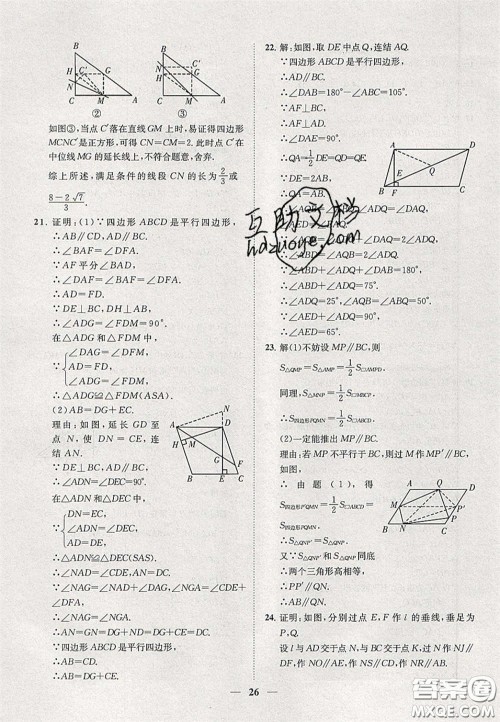 如图③,当点C′落在直线GM上时,易证得四边形
MCNC′是正方形.可得CN=CM=2.此时点C′在
中位线MG的延长线上,不符合题意,舍弃.
综上所述,满足条件的线段CN的长为2/3或
(8-2√7)/3.
21. 证明:(1)∵四边形ABCD是平行四边形,
∴AB∥CD.
∴∠BAF=∠DFA.
∵AF平分∠BAD,
∴∠BAF=∠DAF.
∴∠DAF=∠DFA.
∴AD=FD.
∵DE⊥BC,DH⊥AB,
∴∠ADG=∠FDM=90°.
在△ADG和△FDM中,
∵{∠DAG=∠DFM,
AD=FD,
∠ADG=∠FDM,
∴△ADG≌△FDM(ASA).
(2)AB=DG+EC.
理由:如图,延长GD至
点N,使DN=CE,连结
AN.
∵DE⊥BC,AD∥BC,
∴∠ADN=∠DEC=90°.
在△ADN和△DEC中,
∵{DN=EC,
∠ADN=∠DEC,
AD=DE,
∴△ADN≌△DEC(SAS).
∴∠NAD=∠CDE.
∵∠NAG=∠NAD+∠DAG,
∠NGA=∠CDE+∠DFA,
∴∠NAG=∠NGA.
∴AN=GN=DG+ND=DG+CE=DC.
∵四边形ABCD是平行四边形,
∴AB=CD.
∴AB=DG+EC.
22. 解:如图,取DE中点Q,连结AQ.
∵四边形ABCD是平行四边形,
∴AD∥BC.
∴∠DAB=180°-∠ABC=105°.
∵AF⊥BC,
∴AF⊥AD.
∴∠DAE=90°.
∴QA=1/2DE=DQ=QE.
∴QA=AB.
∴∠ABD+∠ADQ+∠DAB=180°,
∴∠ABD+∠ADQ=75°.
∴∠ADQ=25°,∠ABQ=50°.
∴∠AED=90°-∠ADQ.
∴∠AED=65°.
23. 解(1)不妨设MP∥BC,则
S△QMP=1/2S▱AMPD.
同理,S△MNP=1/2S▱MBCP.
∴S四边形PQMN=1/2S▱ABCD.
(2)一定能推出MP∥BC.
理由:若MP不平行于BC,则过M作MP′∥BC.
∵由题(1)得
S四边形P′QMN=1/2S▱ABCD.
∴S△QNP′=S△QNP.
又∵S△QNP′与S△QNP同底
∴两个三角形高相等,
∴PP′∥QN.
又∵DC与QN不平行.
∴MP∥BC.
24. 证明:如图,分别过点E,F作l的垂线,垂足为
P,Q.
设l与AD交于点K,与BC交于点M.可证NJ//
DS,作NO//AF,NS//CD,作JT//BC,JR//AB.
26